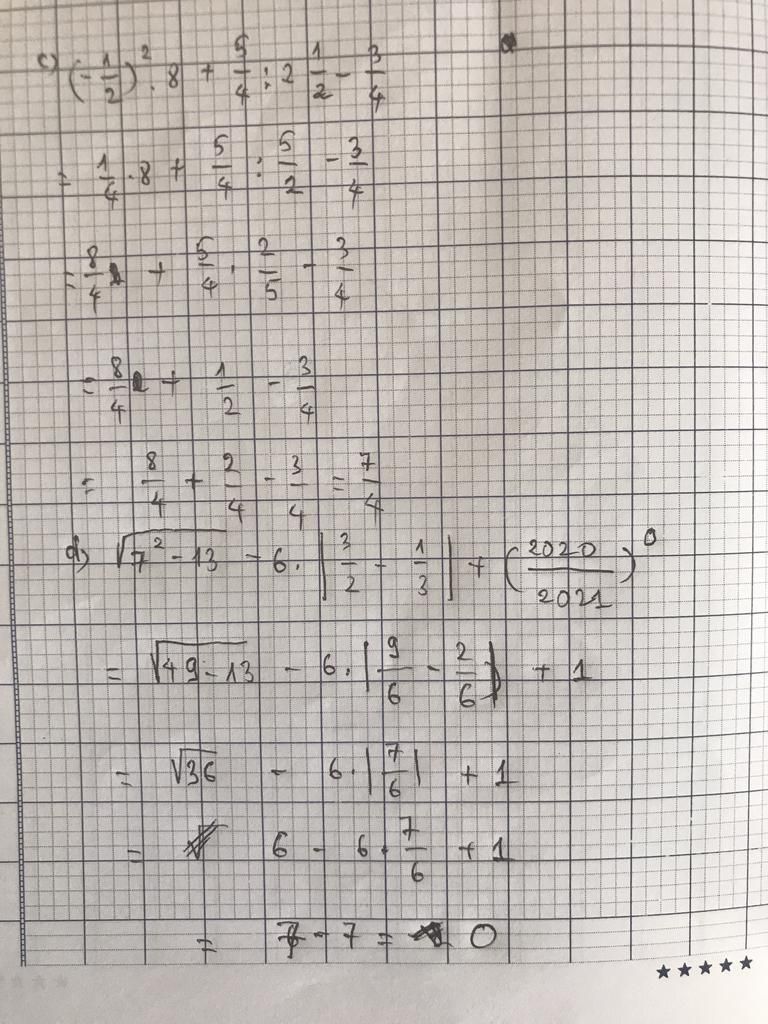 c) (-1/2)² . 8 + 5/4 : 2 1/2 - 3/4
= 1/4 . 8 + 5/4 : 5/2 - 3/4
= 8/4 + 5/4 . 2/5 - 3/4
= 8/4 + 1/2 - 3/4
= 8/4 + 2/4 - 3/4 = 7/4
d) √(7² - 13) - 6 . |3/2 - 1/3| + (2020/2021)⁰
= √(49 - 13) - 6 . |9/6 - 2/6| + 1
= √36 - 6 . |7/6| + 1
= 6 - 6 . 7/6 + 1
= 7 - 7 = 0